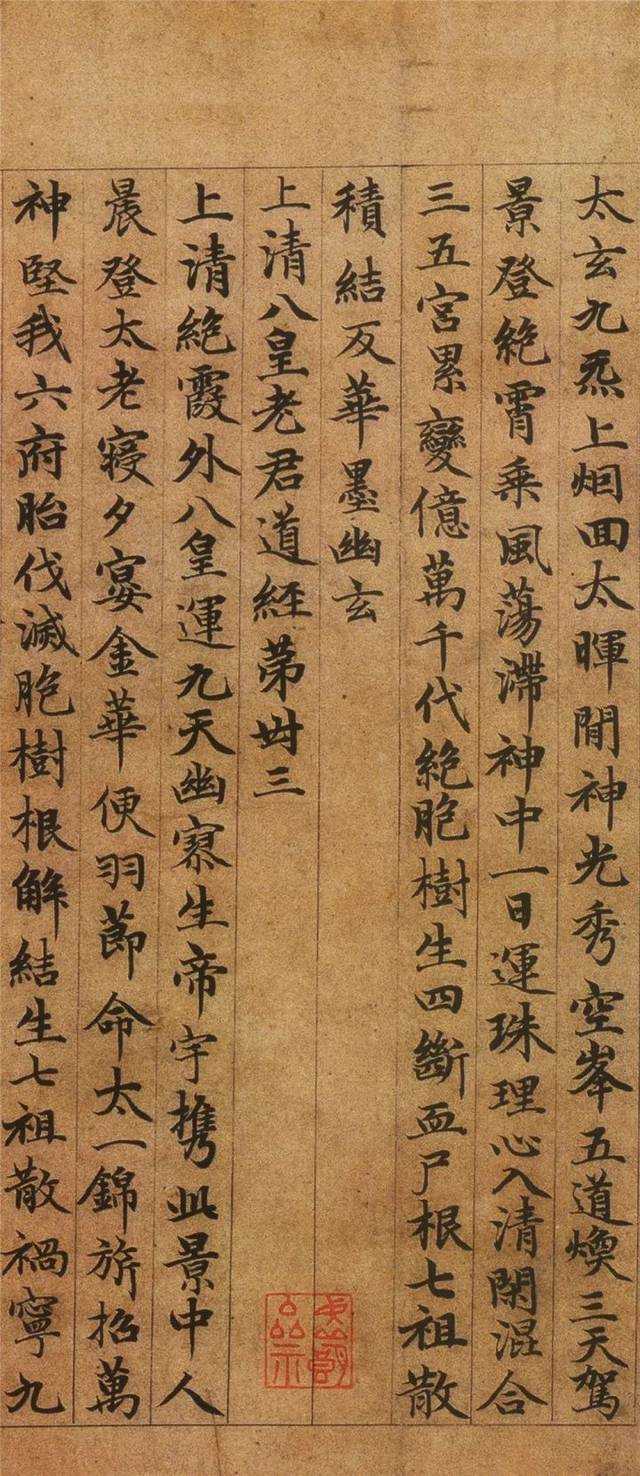 太玄九炁上烟回太暉閒神光秀空峯五道煥三天駕
景登絶霄乘風蕩滯神中一日運珠理心入清閑混合
三五宮累變億萬千代絶胞樹生四斷血尸根七祖散
積結反華墨幽玄
上清八皇老君道經苐卌三
上清絶霞外八皇運九天幽寥生帝宇携此景中人
晨登太老寢夕宴金華便羽莭命太一錦旂招萬
神堅我六府胎伐滅胞樹根解結生七祖散禍寧九